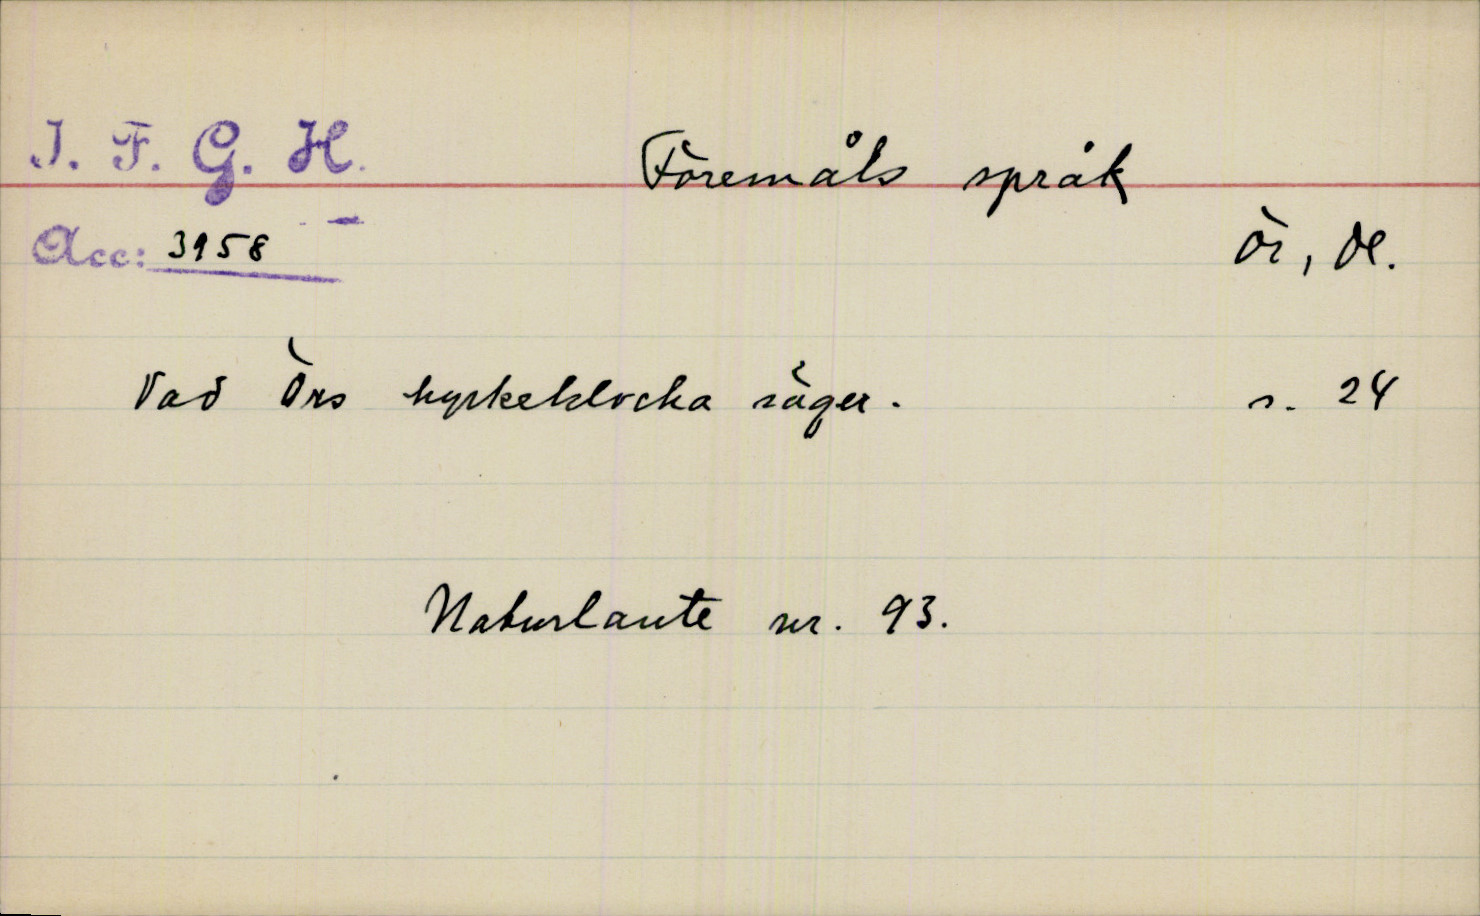 I. F. G. H.
Föremåls språk
Acc: 3958
Ör, Dl.
Vad Örs kyrkeklocka säger. s. 24
Naturlaute nr. 93.